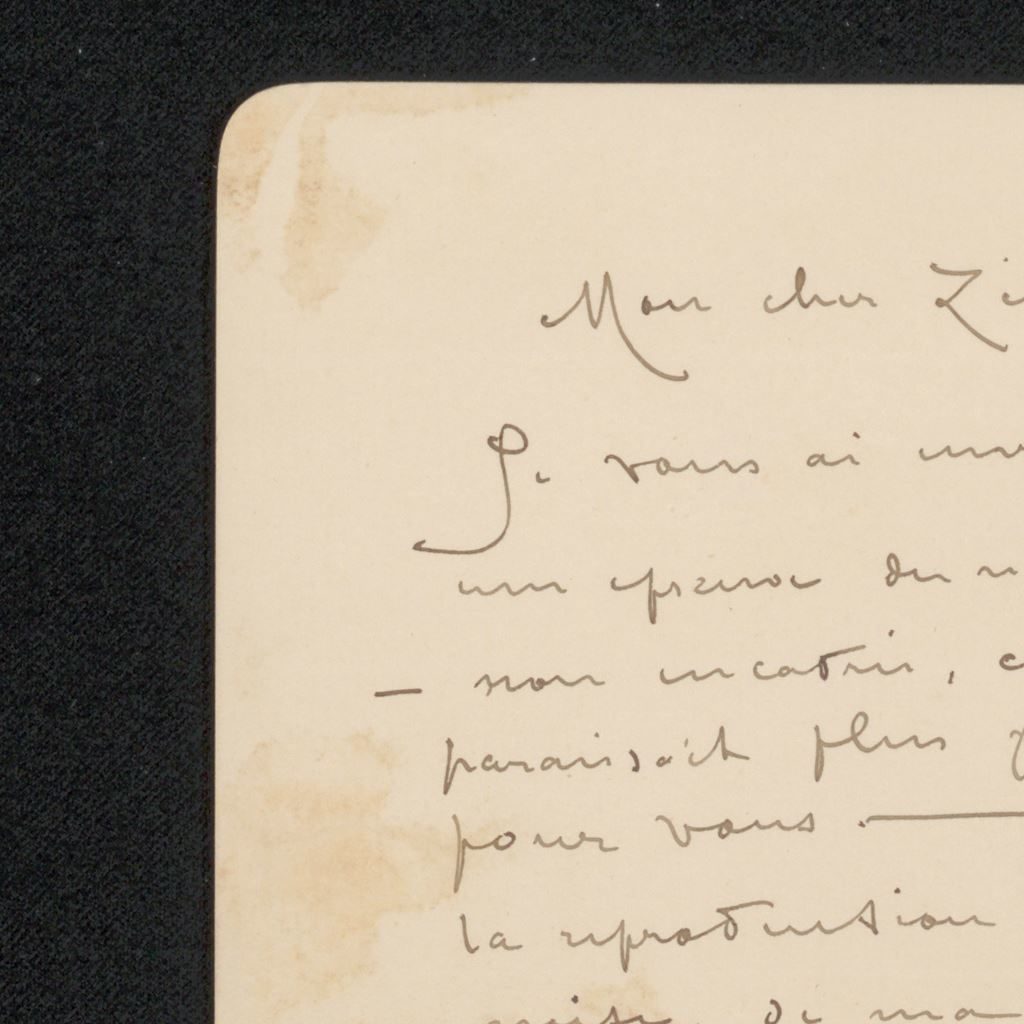 Mon cher Zi
Je vous ai env
une épreuve du
— non encadrée, c
paraissait plus
pour vous. —
la reproduction
de ma